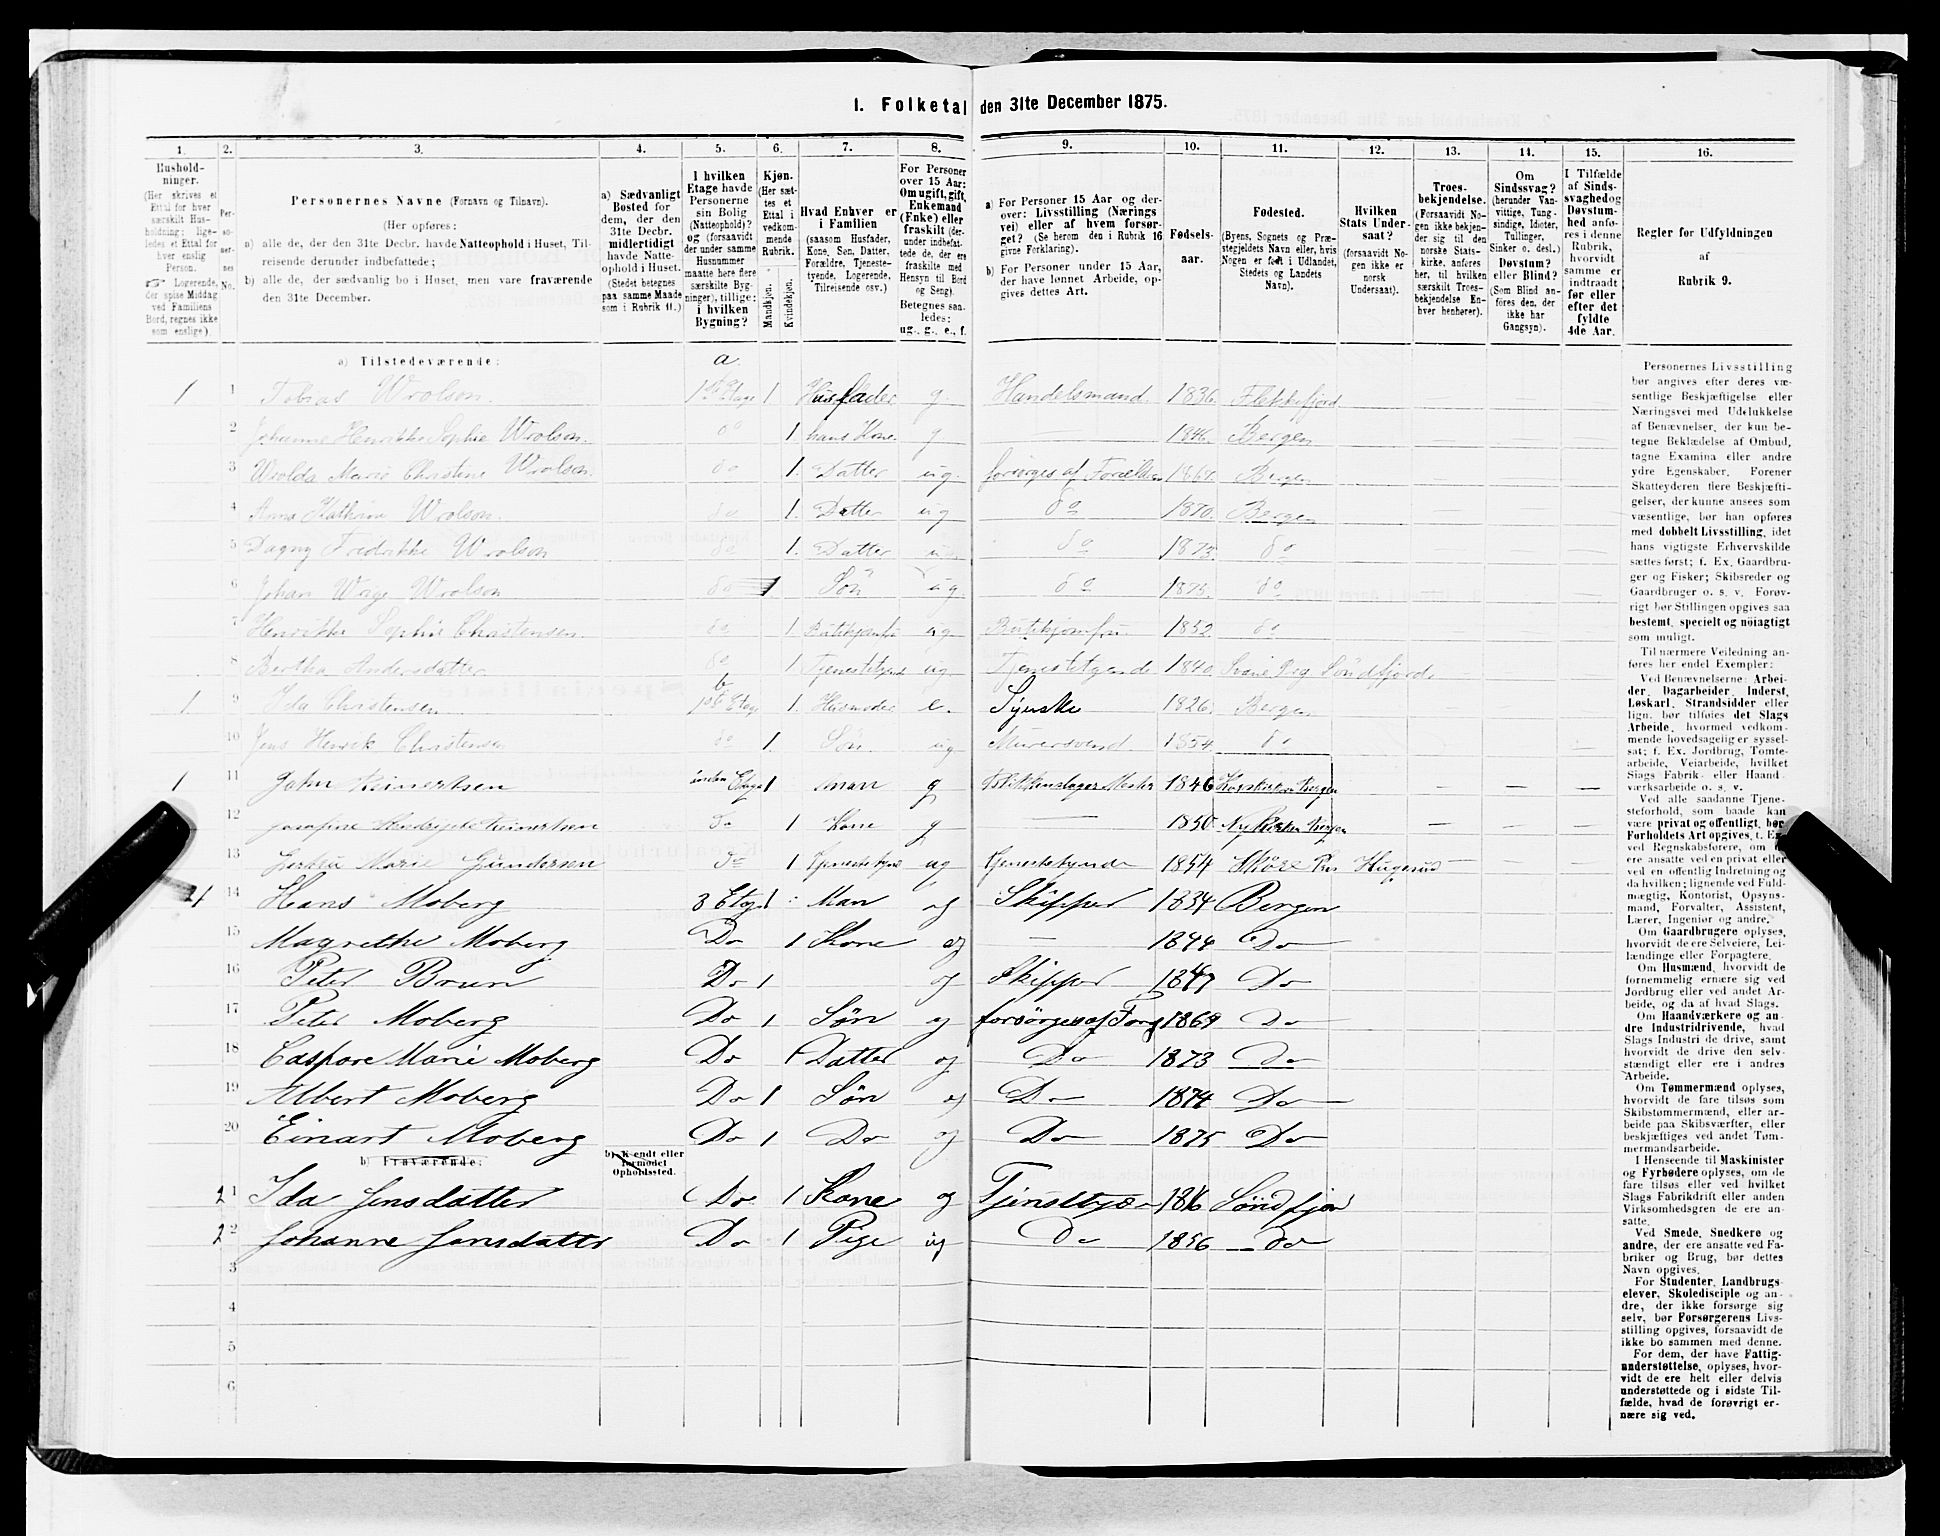 1. Folketal den 31te December 1875.
1. 2. 3. 4. 5. 6. 7. 8. 9. 10. 11. 12. 13. 14. 15. 16.
Hushold-
ninger.
(Her skrives et
Ettal for hver
særskilt Hus-
holdning; lige-
ledes et Ettal for
hver enslig
Person.
☞ Logerende,
der spise Middag
ved Familiens
Bord, regnes ikke
som enslige).
Per-
so-
ner-
nes
No.
Personernes Navne (Fornavn og Tilnavn).
(Her opføres:
a) alle de, der den 31te Decbr. havde Natteophold i Huset, Til-
reisende derunder indbefattede;
b) alle de, der sædvanlig bo i Huset, men vare fraværende
den 31te December.
a) Sædvanligt
Bosted for
dem, der den
31te Decbr.
midlertidigt
havde Natte-
ophold i Huset.
(Stedet betegnes
paa samme Maade
som i Rubrik 11.)
I hvilken
Etage havde
Personerne
sin Bolig
(Natteophold)?
og (forsaavidt
der under samme
Husnummer
maatte høre flere
særskilte Byg-
ninger), tillige:
i hvilken
Bygning?
Kjøn.
(Her sæt-
tes et
Ettal i
vedkom-
mende
Rubrik.
Mandkjøn.
Kvindekjøn.
Hvad Enhver er
i Familien
(saasom Husfader,
Kone, Søn, Datter,
Forældre, Tjeneste-
tyende, Logerende,
Tilreisende osv.)
For Personer
over 15 Aar:
Om ugift, gift,
Enkemand
(Enke) eller
fraskilt (der-
under indbefat-
tede de, der ere
fraskilte med
Hensyn til Bord
og Seng).
Betegnes saa-
ledes:
ug., g., e., f.
a) For Personer 15 Aar og der-
over: Livsstilling (Nærings
vei) eller af hvem forsør-
get? (Se herom den i Rubrik 16
givne Forklaring).
b) For Personer under 15 Aar,
der have lønnet Arbeide, op-
gives dettes Art.
Fødsels-
aar.
Fødested.
(Byens, Sognets og Præ-
stegjeldets Navn eller, hvis
Nogen er født i Udlandet,
Stedets og Landets
Navn).
Hvilken
Stats Under-
saat?
(forsaavidt No-
gen ikke er
norsk
Undersaat).
Troes-
bekjendelse.
(Forsaavidt No-
gen ikke bekjen-
der sig til den
norske Stats-
kirke, anføres
her, til hvilken
særskilt Troes-
bekjendelse En-
hver henhører).
Om
Sindssvag?
(herunder Van-
vittige, Tung-
sindige, Idioter,
Tullinger,
Sinker o. desl.)
Døvstum?
eller Blind?
(Som Blind an-
føres den, der
ikke har
Gangsyn).
I Tilfælde
af Sinds-
svaghed og
Døvstum-
hed anfø-
res i denne
Rubrik,
hvorvidt
samme er
indtraadt
før eller
efter det
fyldte
4de Aar.
Regler for Udfyldningen
af
Rubrik 9.
a) Tilstedeværende: a.
1 1 Tobias Wrolson. 1ste Etage 1 Husfader g. Handelsmand. 1836. Flekkefjord
2 Johanne Henrikke Sophie Wrolson. do 1. hans Kone. g 1846. Bergen
3 Wrolda Marie Christine Wrolson. do 1. Datter ug. forsørges af Forældrene Bergen
4 Anna Kathrine Wrolson. do 1. Datter ug do 1870. Bergen
5 Dagny Fredrikke Wrolson do 1. Datter u do 1873. do
6 Johan Wrolson do 1 Søn ug. do 1875. do
7 Henrikke Sophie Christensen. do 1 ug 1852 do
8 Bertha Andersdatter do 1 Tjenestetyende ug Tjenestetyende 1840. Søndfjord.
b
1 9 Ida Christensen 1ste Etage 1. Husmoder e. Syerske 1826. Bergen
10 Jens Henrik Christensen do 1. Søn. ug Murersvend. 1854. do
1 11 John Reinertsen anden Etage 1 man g 1846 Bergen
12 Josefine Reinertsen do 1 Kone g 1850 Nykirken Bergen
13 Marie Gundersen do 1 Tjenestetyende ug tjenestetyende 1854
4 14 Hans Moberg 3 Etage 1 Man g Skipper 1834 Bergen
15 Magrethe Moberg Do 1 Kone g 1844 Do
16 Peter Brun Do 1 ug Skipper Do
17 Peter Moberg Do 1 Søn ug forsørges af 1869 Do
18 Caspare Marie Moberg Do 1 Datter ug Do 1873 Do
19 Albert Moberg Do 1 Søn ug Do 1874 Do
20 Einart Moberg Do 1 Do ug Do 1875 Do
b) Fraværende: b) Kjendt eller
formodet
Opholdssted.
2 1 Ida Jensdatter Do 1 Kone Søndfjor
2 2 Johanne Jansdatter Do 1 Pige ug Do 1856 Do
3
4
5
6
Personernes Livsstilling
bør angives efter deres væ-
sentlige Beskjæftigelse eller
Næringsvei med Udelukkelse
af Benævnelser, der kun be-
tegne Beklædelse af Ombud,
tagne Examina eller andre
ydre Egenskaber. Forener
Skatteyderen flere Beskjæfti-
gelser, der kunne ansees som
væsentlige, bør han opføres
med dobbelt Livsstilling, idet
hans vigtigste Erhvervskilde
sættes først; f. Ex. Gaardbru-
ger og Fisker; Skibsreder og
Gaardbruger o. s. v. Forøv-
rigt bør Stillingen opgives saa
bestemt, specielt og nøiagtigt
som muligt.
Til nærmere Veiledning an-
føres her endel Exempler:
Ved Benævnelserne: Arbei-
der, Dagarbeider, Inderst,
Løskarl, Strandsidder eller
lign. bør tilføies det Slags
Arbeide, hvormed vedkom-
mende hovedsagelig er syssel-
sat; f. Ex. Jordbrug, Tomte-
arbeide, Veiarbeide, hvilket
Slags Fabrik- eller Haand-
værksarbeide o. s. v.
Ved alle saadanne Tjene-
steforhold, som baade kan
være privat og offentligt, bør
Forholdets Art opgives, t. Ex.
ved Regnskabsførere, om
ere ansatte ved en privat eller
ved en offentlig Indretning og
da hvilken; lignende ved Fuld-
mægtig, Kontorist, Opsyns-
mand, Forvalter, Assistent,
Lærer, Ingeniør og andre.
Om Gaardbrugere oplyses,
hvorvidt de ere Selveiere, Lei-
lændinge eller Forpagtere.
Om Husmænd, hvorvidt de
fornemmelig ernære sig ved
Jordbrug eller ved andet Ar-
beide, og da af hvad Slags.
Om Haandværkere og an-
dre Industridrivende, hvad
Slags Industri de drive, samt
hvorvidt de drive den selv-
stændigt eller ere i andres
Arbeide.
Om Tømmermænd oplyses,
hvorvidt de fare tilsøs som
Skibstømmermænd, eller ar-
beide paa Skibsværfter, eller
beskjæftiges ved andet Tøm-
mermandsarbeide.
I Henseende til Maskinister
og Fyrbødere oplyses, om de
fare tilsøs eller ved hvilket
Slags Fabrikdrift eller anden
Virksomhedsgren de ere an-
satte.
Ved Smede, Snedkere og
andre, der ere ansatte ved Fa-
briker og Brug, bør dettes
Navn opgives.
For Studenter, Landbrugs-
elever, Skoledisciple og an-
dre, der ikke forsørge sig
selv, bør Forsørgerens Livs-
stilling opgives, forsaavidt de
ikke bo sammen med denne.
For dem, der have Fattig-
understøttelse, oplyses, hvor-
vidt de ere helt eller delvis
understøttede og i sidste Til-
fælde, hvad de forøvrigt er-
nære sig ved.